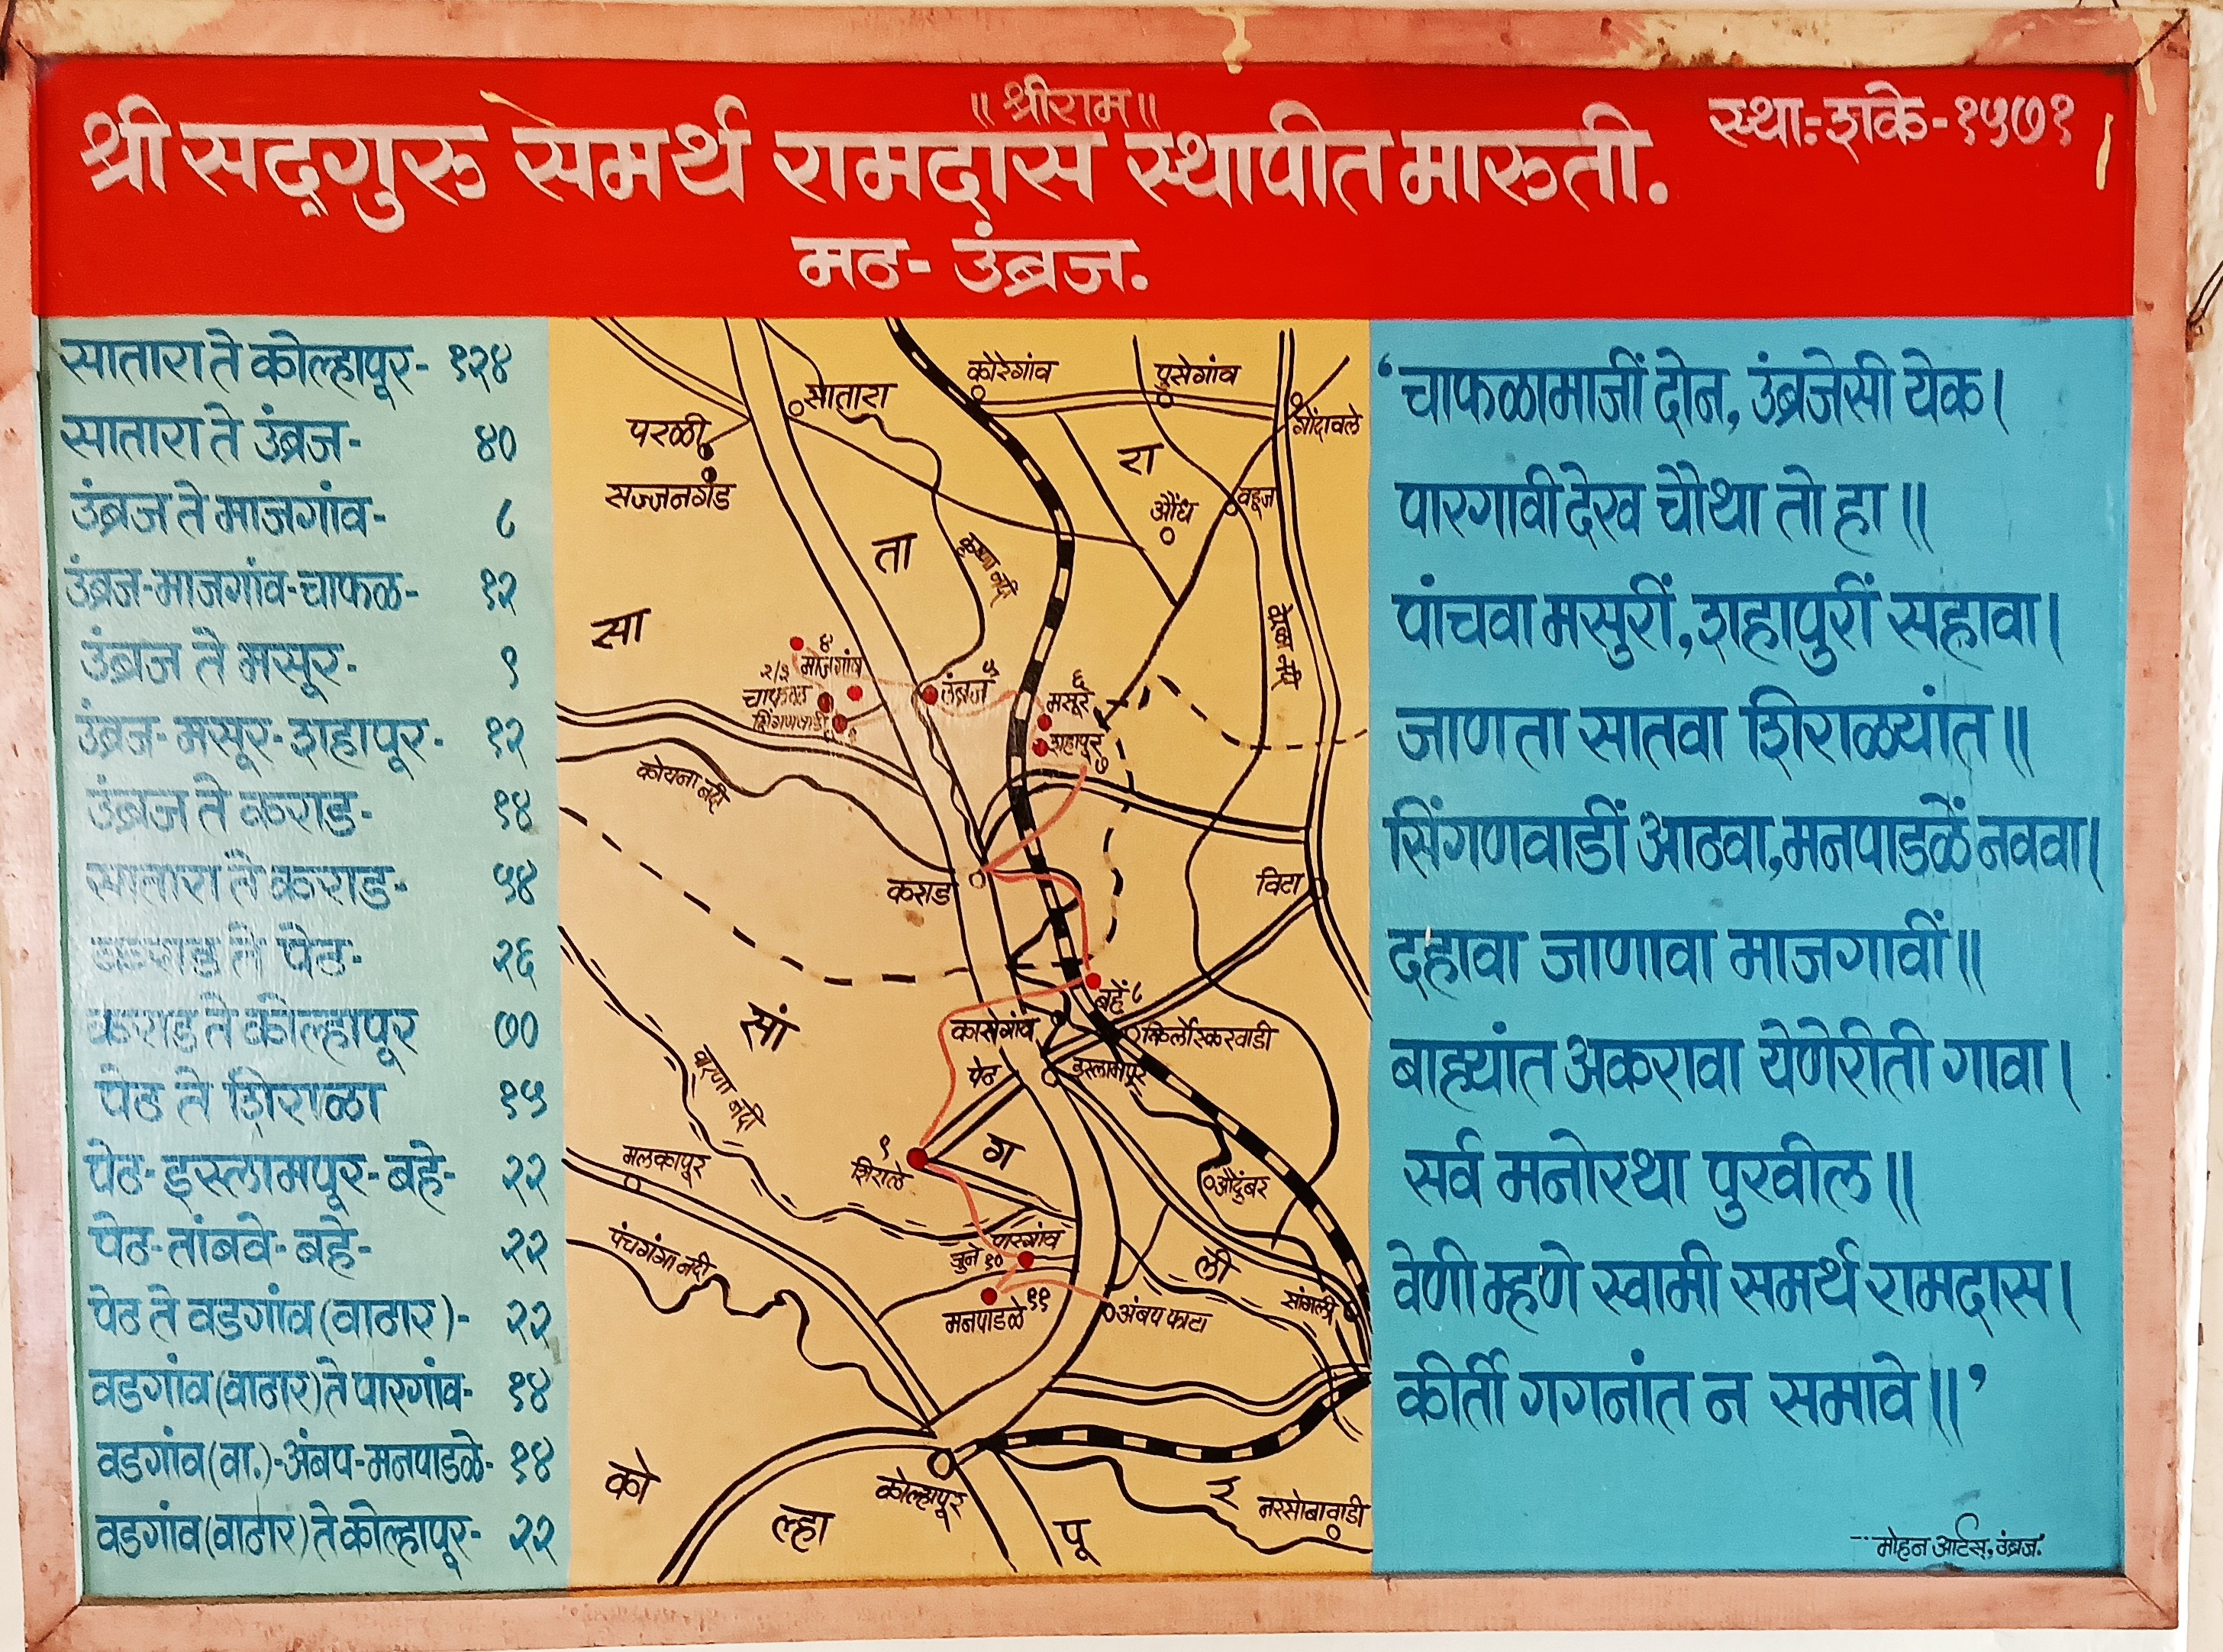 ॥ श्रीराम ॥
श्री सद्‌गुरु समर्थ रामदास स्थापीत मारुती.
स्था:-शके-१५७१
मठ- उंब्रज.
सातारा ते कोल्हापूर- १२४
सातारा ते उंब्रज- ४०
उंब्रज ते माजगांव- ८
उंब्रज-माजगांव-चाफळ- १२
उंब्रज ते मसूर- ९
उंब्रज-मसूर-शहापूर- १२
उंब्रज ते कराड- १४
सातारा ते कराड- ५४
कराड ते पेठ- २६
कराड ते कोल्हापूर ७०
पेठ ते शिराळा १५
पेठ-इस्लामपूर-बहे- २२
पेठ-तांबवे-बहे- २२
पेठ ते वडगांव(वाठार)- २२
वडगांव(वाठार)ते पारगांव- १४
वडगांव(वा.)-अंबप-मनपाडळे- १४
वडगांव(वाठार)ते कोल्हापूर- २२
कोरेगांव
पुसेगांव
सातारा
परळी
गोंदावले
सज्जनगड
रा
औंध
वडूज
ता
कृष्णा नदी
सा
४
माजगांव
२/३
चाफळ
शिंगणवाडी
१
उंब्रज
५
६
मसूर
शहापूर
७
कोयना नदी
कराड
विटा
बहे ८
सां
कासेगांव
किर्लोस्करवाडी
पेठ
इस्लामपूर
वारणा नदी
९
शिराळे
ग
मलकापूर
औदुंबर
पंचगंगा नदी
पारगांव
जुने १०
ली
मनपाडळे ११
अंबप फाटा
सांगली
को
कोल्हापूर
ल्हा
पू
र
नरसोबावाडी
‘चाफळामाजीं दोन, उंब्रजेसी येक।
पारगावी देख चौथा तो हा॥
पांचवा मसुरीं, शहापुरीं सहावा।
जाण ता सातवा शिराळयांत॥
सिंगणवाडीं आठवा, मनपाडळें नववा।
दहावा जाणावा माजगावीं॥
बाह्यांत अकरावा येणेरीती गावा।
सर्व मनोरथा पुरवील॥
वेणी म्हणे स्वामी समर्थ रामदास।
कीर्ती गगनांत न समावे॥’
मोहन आर्टस्, उंब्रज.